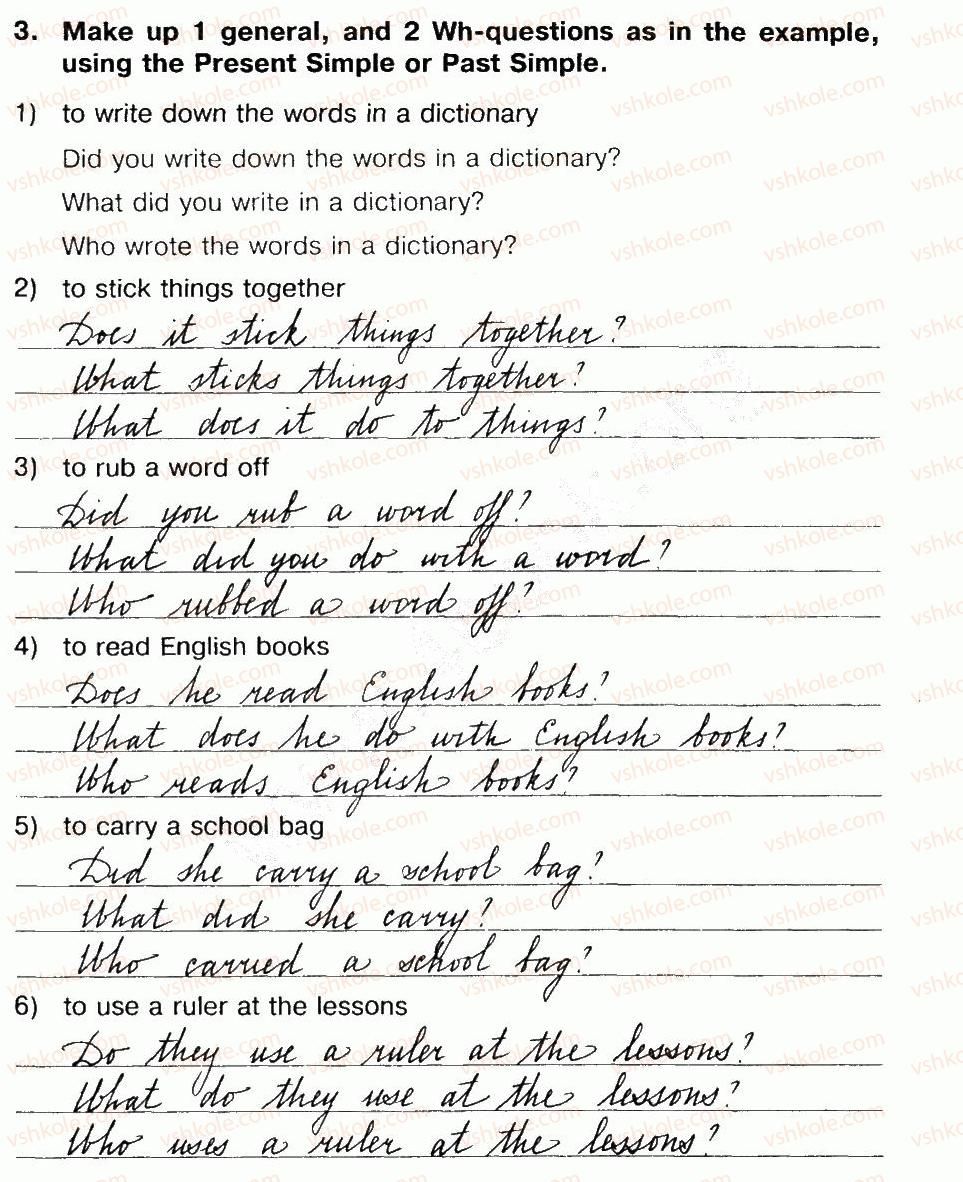 3. Make up 1 general, and 2 Wh-questions as in the example,
using the Present Simple or Past Simple.
1) to write down the words in a dictionary
Did you write down the words in a dictionary?
What did you write in a dictionary?
Who wrote the words in a dictionary?
2) to stick things together
Does it stick things together?
What sticks things together?
What does it do to things?
3) to rub a word off
Did you rub a word off?
What did you do with a word?
Who rubbed a word off?
4) to read English books
Does he read English books?
What does he do with English books?
Who reads English books?
5) to carry a school bag
Did she carry a school bag?
What did she carry?
Who carried a school bag?
6) to use a ruler at the lessons
Do they use a ruler at the lessons?
What do they use at the lessons?
Who uses a ruler at the lessons?
vshkole.com